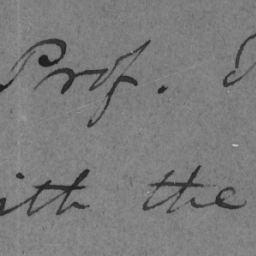 Prof.
ith the